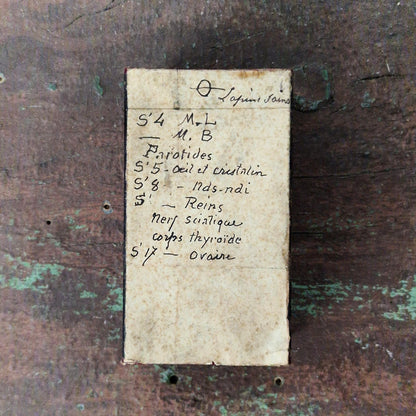 Lapins sains
S'4 M.L
— M.B
Parotides
S'5 - oeil et cristallin
S'8 - Nds-ndi
S' — Reins
Nerf sciatique
corps thyroïde
S'17 — Ovaire